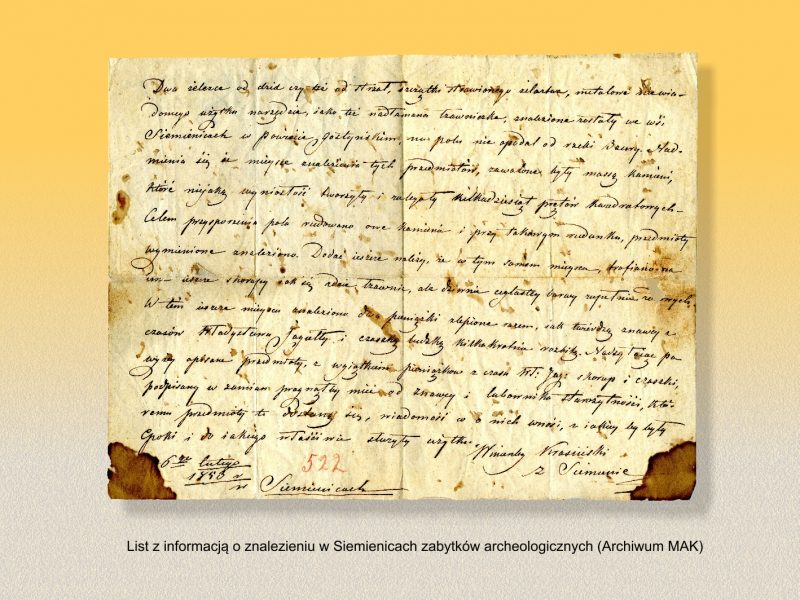 Dwa żelezca od dzid czy też od strzał, szczątki strawionego żelaztwa, metalowe niewia-
domego użytku narzędzie, jako też nadłamana łzawniczka, znalezione zostały we wsi
Siemienicach w Powiecie Gostyńskim, na polu nie opodal od rzeki Bzury. Nad-
mienia się że miejsce znalezienia tych przedmiotów, zawalone były massą kamieni,
które niejaką wyniosłość tworzyły i zalegały kilkadziesiąt prętów kwadratowych.
Celem przysporzenia pola rudowano owe kamienie i przy takowym rudunku, przedmioty
wymienione znaleziono. Dodać jeszcze należy, że w tym samem miejscu, trafiano na
skorupy jak się zdaje łzawnic, ale dziwnie ceglastej barwy
W tém jeszcze miejscu znaleziono dwa pieniążki zlepione razem, jak twierdzą znawcy z
czasów Władysława Jagiełły i czaszkę ludzką kilkakrotnie rozbitą. Nadsyłając po-
wyżej opisane przedmioty, z wyjątkiem pieniążków z czasu Wł: Jag: skorup i czaszki,
podpisany w zamian pragnąłby mieć od znawcy i lubownika starożytności, któ-
remu przedmioty te dostaną się, wiadomość co o nich wnosi, z jakiej by były
Epoki i do jakiego właściwie służyły użytku.
Wincenty Krasiński
z Siemienic
6go Lutego
1856 r
w Siemienicach
522
List z informacją o znalezieniu w Siemienicach zabytków archeologicznych (Archiwum MAK)